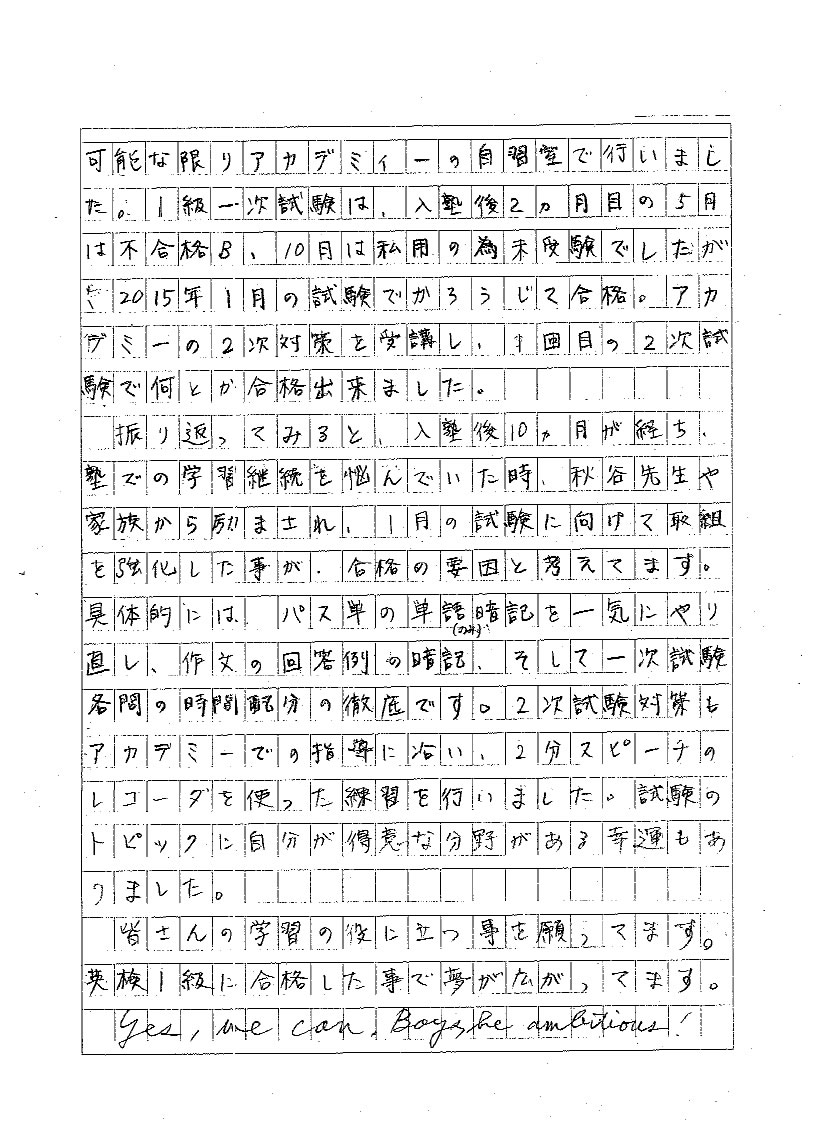 可能な限りアカデミィーの自習室で行いまし
た。1級一次試験は、入塾後2ヵ月目の5月
は不合格B、10月は私用の為未受験でしたが
、2015年1月の試験でかろうじて合格。アカ
デミーの2次対策を受講し、1回目の2次試
験で何とか合格出来ました。
振り返ってみると、入塾後10ヵ月が経ち、
塾での学習継続を悩んでいた時、秋谷先生や
家族から励まされ、1月の試験に向けて取組
を強化した事が、合格の要因と考えてます。
具体的には パス単の単語暗記を一気にやり
直し、作文の回答例(のみ)の暗記、そして一次試験
各問の時間配分の徹底です。2次試験対策も
アカデミーでの指導に沿い、2分スピーチの
レコーダを使った練習を行いました。試験の
トピックに自分が得意な分野がある幸運もあ
りました。
皆さんの学習の役に立つ事を願ってます。
英検1級に合格した事で夢が広がってます。
Yes, we can. Boys, be ambitious!